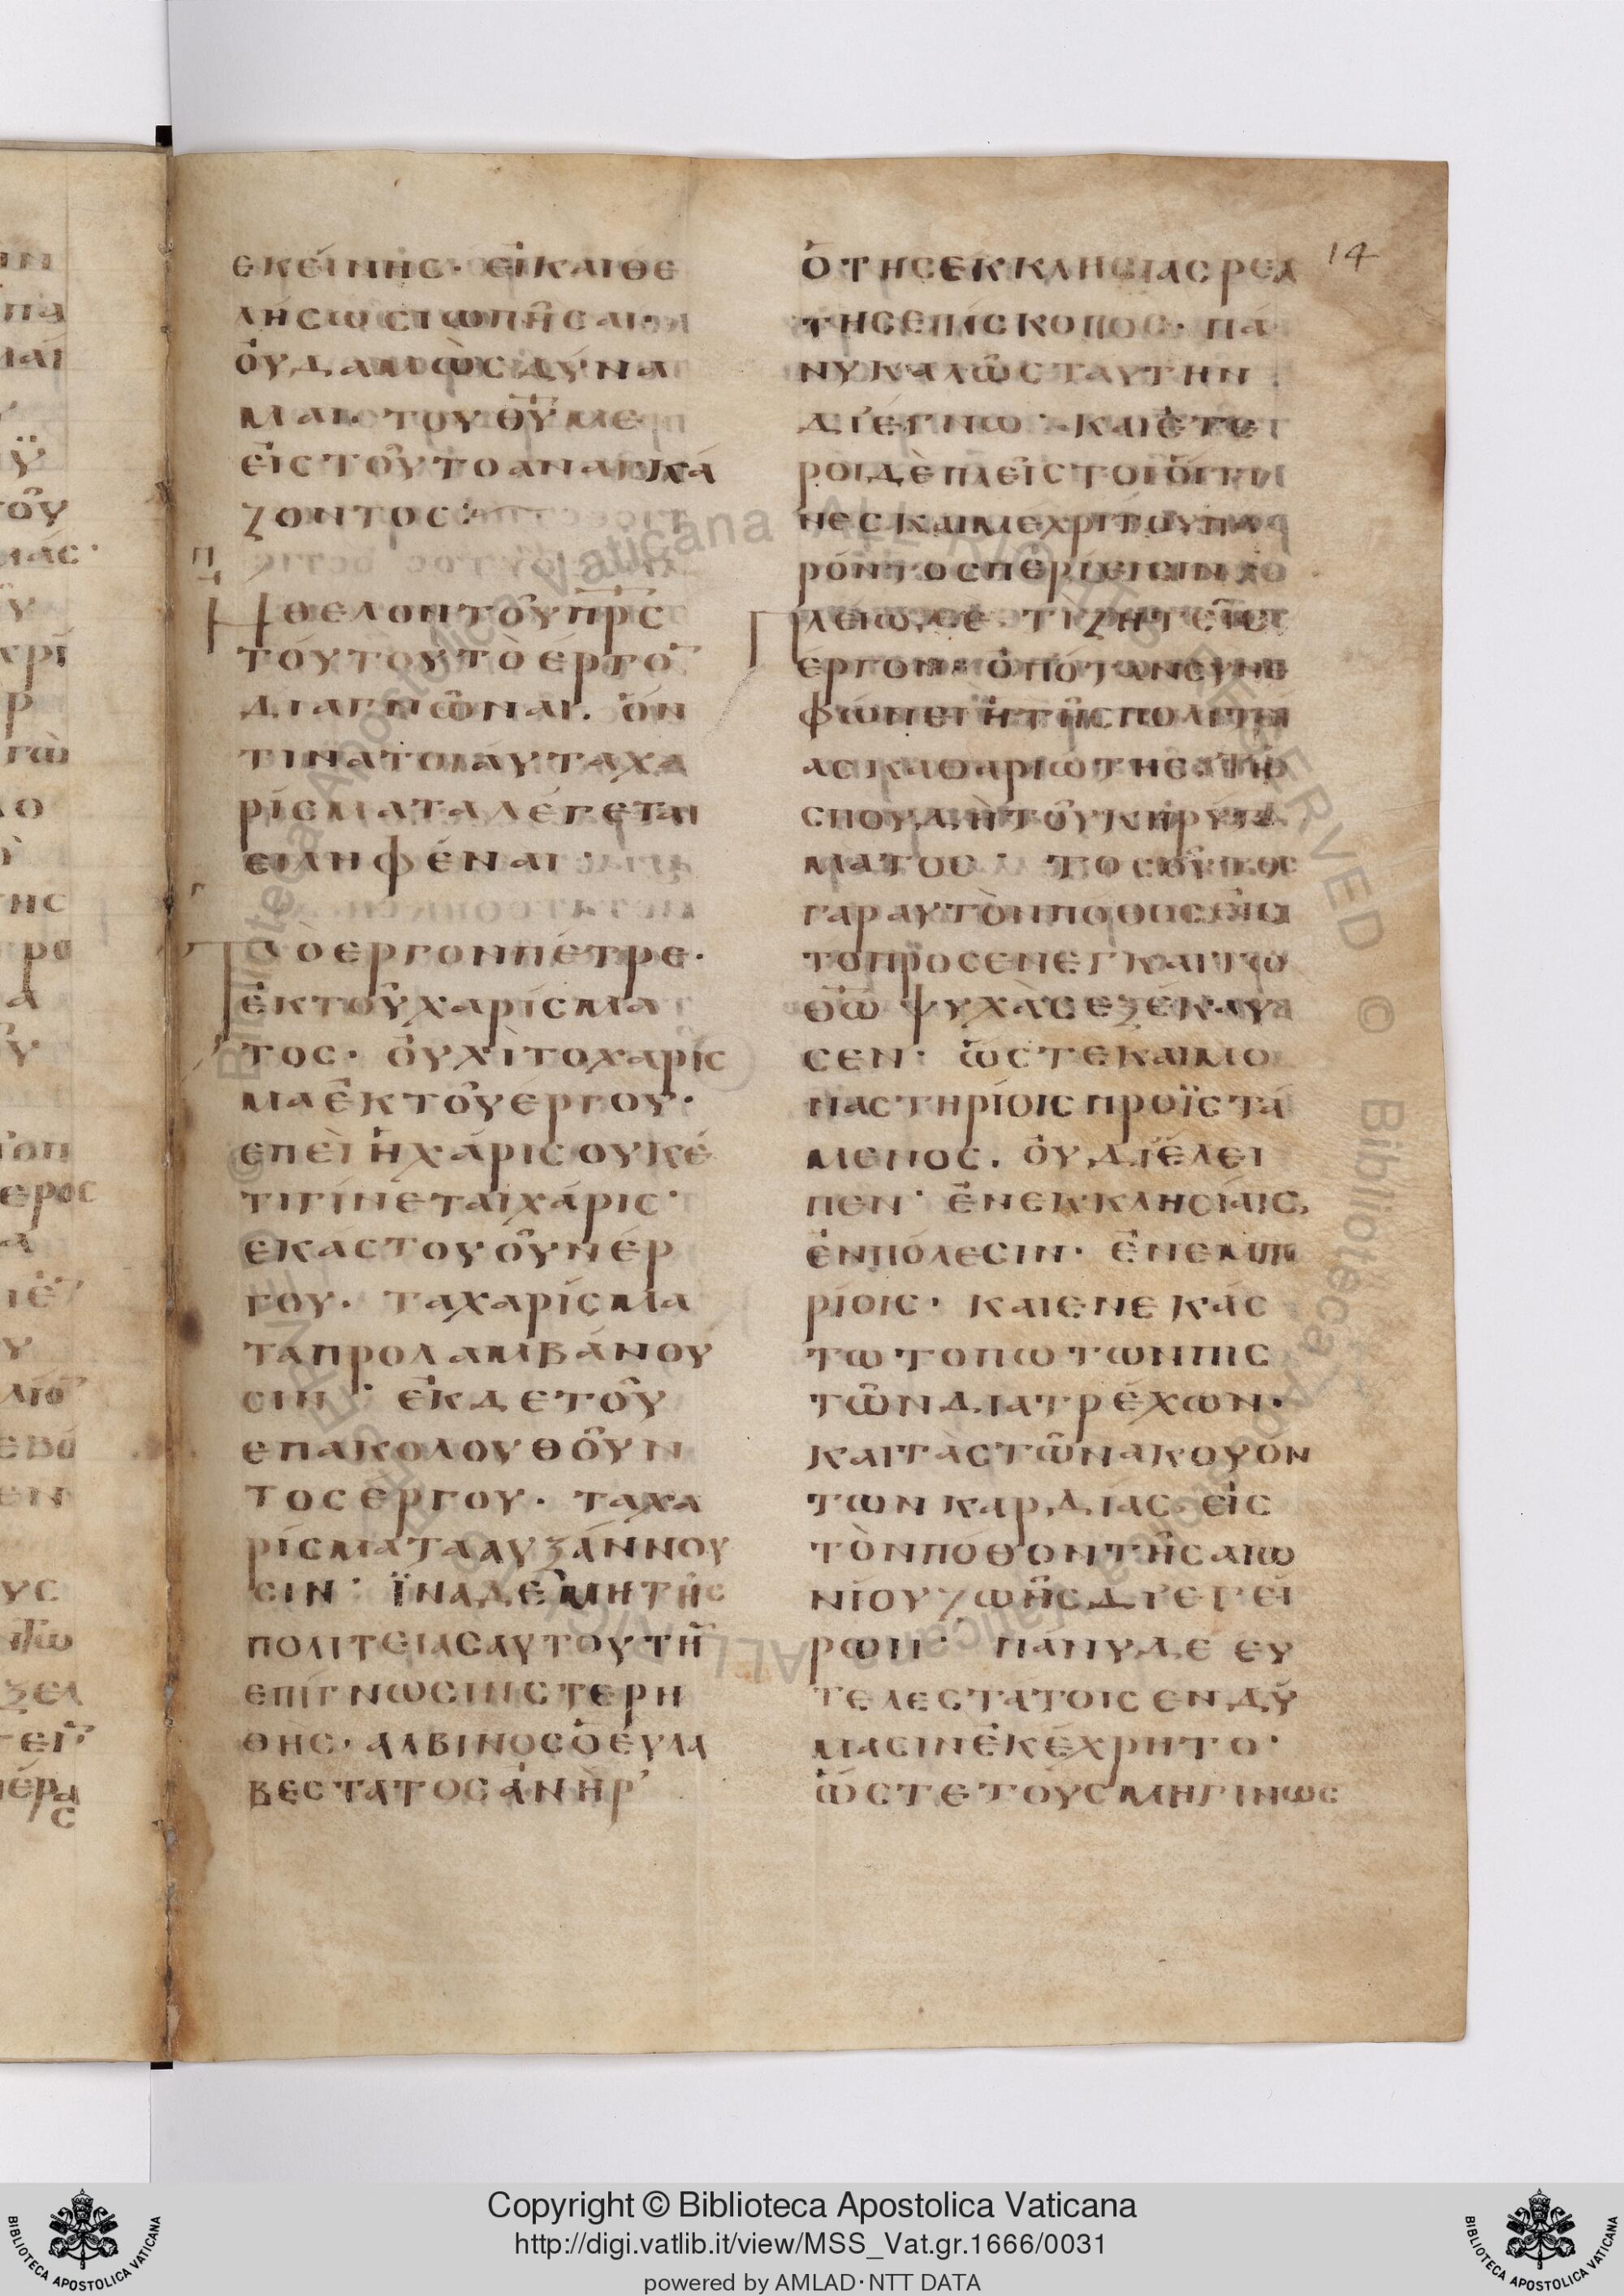 14
ΕΚΕΊΝΗΣ· ΕἸΚΑΙΘΕ
ΛΉΣΩΣΙΩΠΗ͂ΣΑΙ·
ΟΥ̓ΔΑΜΩ͂ΣΔΎΝΑ
ΜΑΙ· ΤΟΥΘ̅Υ̅ΜΕ
ΕἸΣΤΟΥ͂ΤΟΑΝΑΓΚΆ
ΖΟΝΤΟΣ:
Π
ΗΘΕΛΟΝΤΟΥ͂Π̅Ρ̅Σ̅
ΤΟΎΤΟΥΤῸΈΡΓΟ̅
ΔΙΑΓΝΩ͂ΝΑΙ. ὍΝ
ΤΙΝΑΤΟΙΑΥΤΑΧΑ
ΡΊΣΜΑΤΑΛΈΓΕΤΑΙ
ΕΙΛΗΦΈΝΑΙ·
Γ
ΤῸΕΡΓΟΝΠΈΤΡΕ·
ἘΚΤΟΥ͂ΧΑΡΊΣΜΑ
ΤΟΣ· ΟΥ̓ΧῚΤΟΧΑΡΊΣ
ΜΑἘΚΤΟΥ͂ΈΡΓΟΥ·
ΕΠΕῚἩΧΆΡΙΣΟΥΚΈ
ΤΙΓΊΝΕΤΑΙΧΆΡΙΣ·
ΕΚΆΣΤΟΥΟΥ͂ΝΈΡ
ΓΟΥ· ΤΑΧΑΡΊΣΜΑ
ΤΑΠΡΟΛΑΜΒΆΝΟΥ
ΣΙΝ· ἘΚΔΕΤΟΥ͂
ΕΠΑΚΟΛΟΥΘΟΥ͂Ν
ΤΟΣΕΡΓΟΥ· ΤΑΧΑ
ΡΊΣΜΑΤΑΑΥΞΆΝΝΟΥ
ΣΙΝ· ΪΝΑΔΕΜΗΤΗ͂Σ
ΠΟΛΙΤΕΙΑΣΑΥΤΟΥΤΗ̅
ΕΠΙΓΝΩΣΙΝΣΤΕΡΗ
ΘΗΣ· ΑΛΒΙΝΟΣὉΕΥΛΑ
ΒΕΣΤΑΤΟΣἈΝῊΡ’
ὉΤΗΣΕΚΚΛΗΣΙΑΣΡΕΑ
ΤΗΣΕΠΊΣΚΟΠΟΣ· ΠΆ
ΝΥΚΑΛΩ͂ΣΤΑΥΤΗΝ
ΔΙΈΓΝΩ· ΚΑΙἙΤΕ
ΡΟΙΔῈΠΛΕΙ͂ΣΤΟΙΟΊΤΙ
ΝΕΣΚΑΙΜΕΧΡΙΤΟΥΠΑ
ΡΌΝΤΟΣΠΕΡΊΕΙΣΙΝΧΟ
ΛΕΙΩΔΕ· ΤΙΖΗΤΕΙ͂Σ
ΈΡΓΟΝ· ὉΠΌΤΑΝΣΥΝΕ
ΦΏΝΕΙἩΤΗ͂ΣΠΟΛΙΤΕΙ
ΑΣΚΑΘΑΡΙΩΤΗΣΑΤΗ͂
ΣΠΟΥΔΗ͂ΤΟΥ͂ΚΗΡΎΓ
ΜΑΤΟΣ· ΤΟΣΟΥ͂ΤΟΣ
ΓΑΡΑΥΤῸΝΠΌΘΟΣΕΙΣ
ΤΟΠΡΟΣΕΝΕΓΚΑΙΤΩ
Θ̅Ω̅ΨΥΧᾺΣΕΞΈΚΑΥ
ΣΕΝ· ὩΣΤΕΚΑΙΜΟ
ΝΑΣΤΗΡΊΟΙΣΠΡΟΪΣΤΆ
ΜΕΝΟΣ. ΟΥ̓ΔΙΈΛΕΙ
ΠΕΝ· ἘΝΕΚΚΛΗΣΊΑΙΣ,
ἘΝΠΌΛΕΣΙΝ· ἘΝΕΜΠΟ
ΡΊΟΙΣ· ΚΑΙΕΝΕΚΆΣ
ΤΩΤΟΠΩΤΩΝΠΙΣ
ΤΩ͂ΝΔΙΑΤΡΈΧΩΝ·
ΚΑΙΤᾺΣΤΩ͂ΝΑΚΟΥΟΝ
ΤΩΝΚΑΡΔΊΑΣ ΕἸΣ
ΤῸΝΠΌΘΟΝΤΗ͂ΣΑΙΩ
ΝΊΟΥΖΩΗ͂ΣΔΙΕΓΕΊ
ΡΩΝ· ΠΑΝΥΔΕ ΕΥ
ΤΕΛΕΣΤΆΤΟΙΣΕΝΔΎ
ΜΑΣΙΝἘΚΈΧΡΗΤΟ·
ὭΣΤΕΤΟΎΣΜΗΓΙΝΩΣ
© Biblioteca Apostolica Vaticana ALL RIGHTS RESERVED
Copyright © Biblioteca Apostolica Vaticana
http://digi.vatlib.it/view/MSS_Vat.gr.1666/0031
powered by AMLAD·NTT DATA
BIBLIOTECA APOSTOLICA VATICANA
BIBLIOTECA APOSTOLICA VATICANA